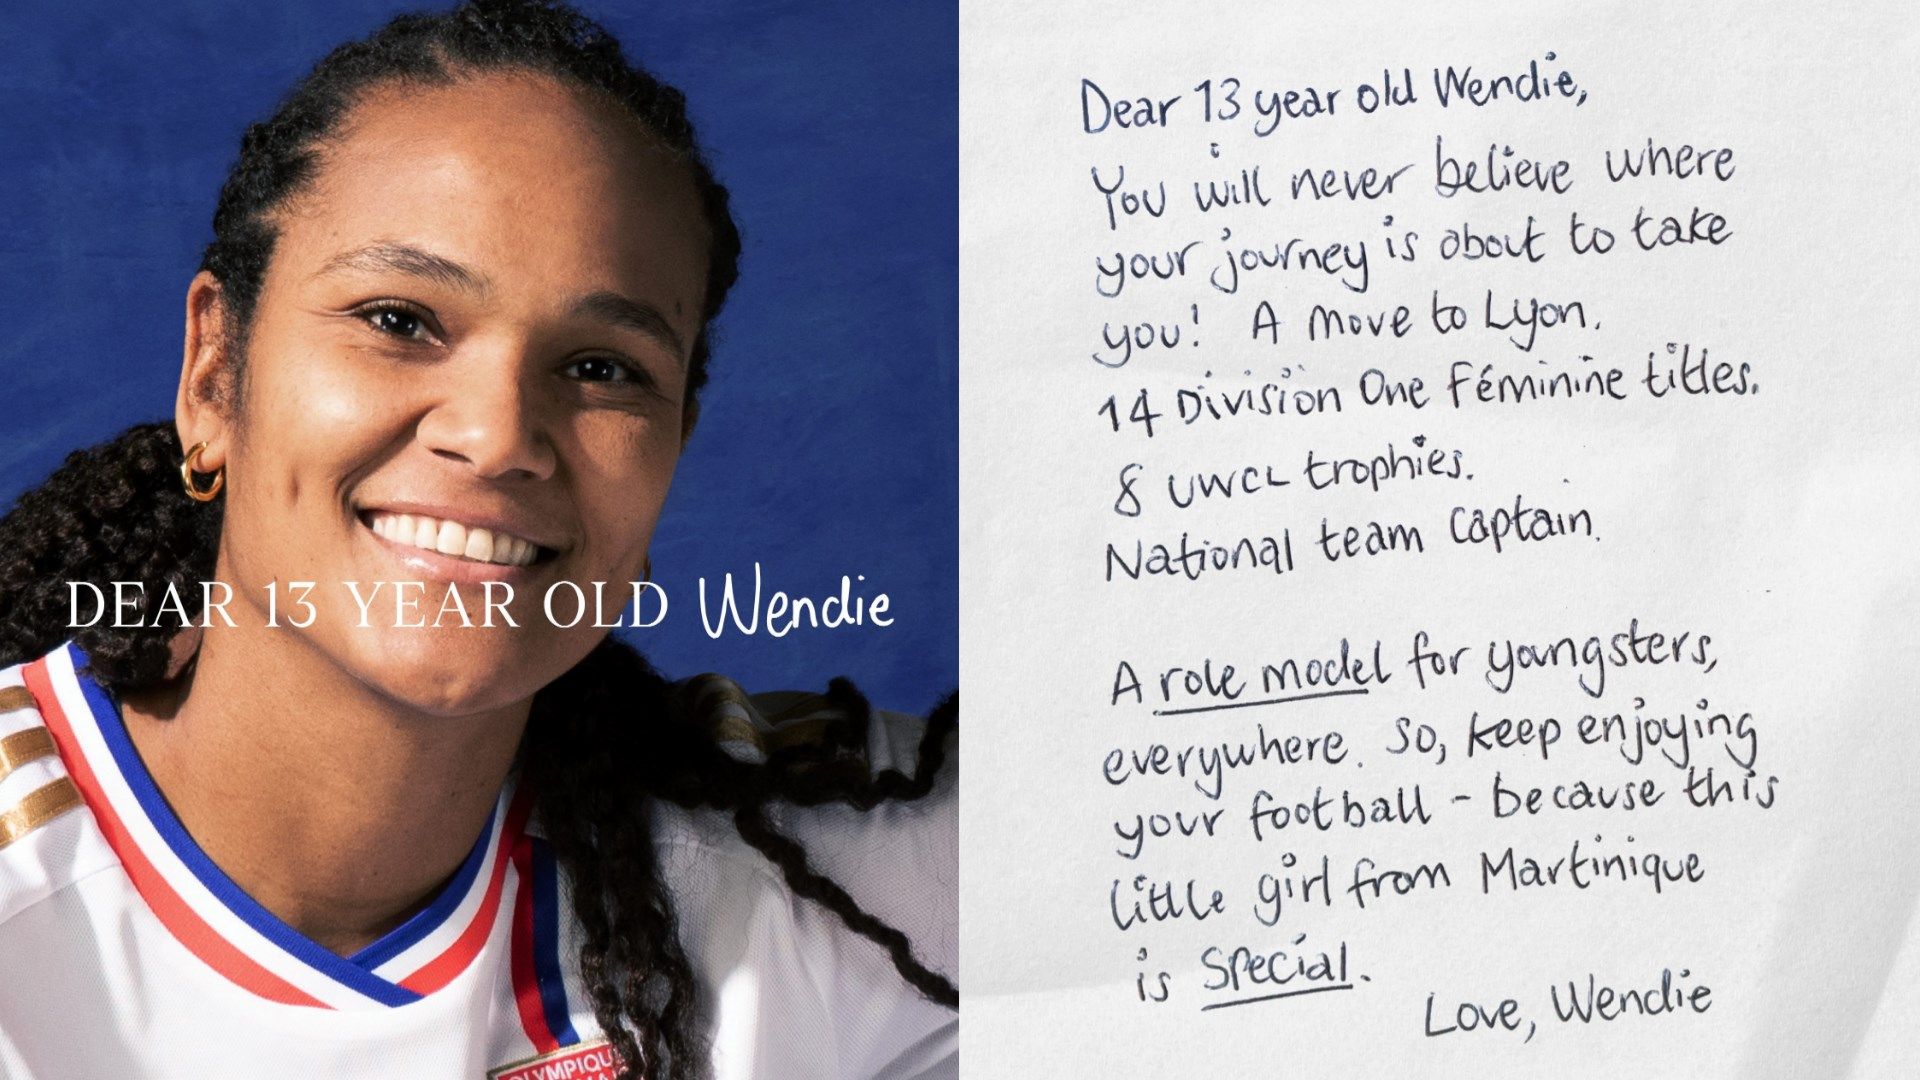 DEAR 13 YEAR OLD Wendie
OLYMPIQU
Dear 13 year old Wendie,
You will never believe where
your journey is about to take
you! A move to Lyon.
14 Division One Féminine titles.
8 UWCL trophies.
National team captain.
A role model for youngsters,
everywhere. So, keep enjoying
your football - because this
little girl from Martinique
is special.
Love, Wendie